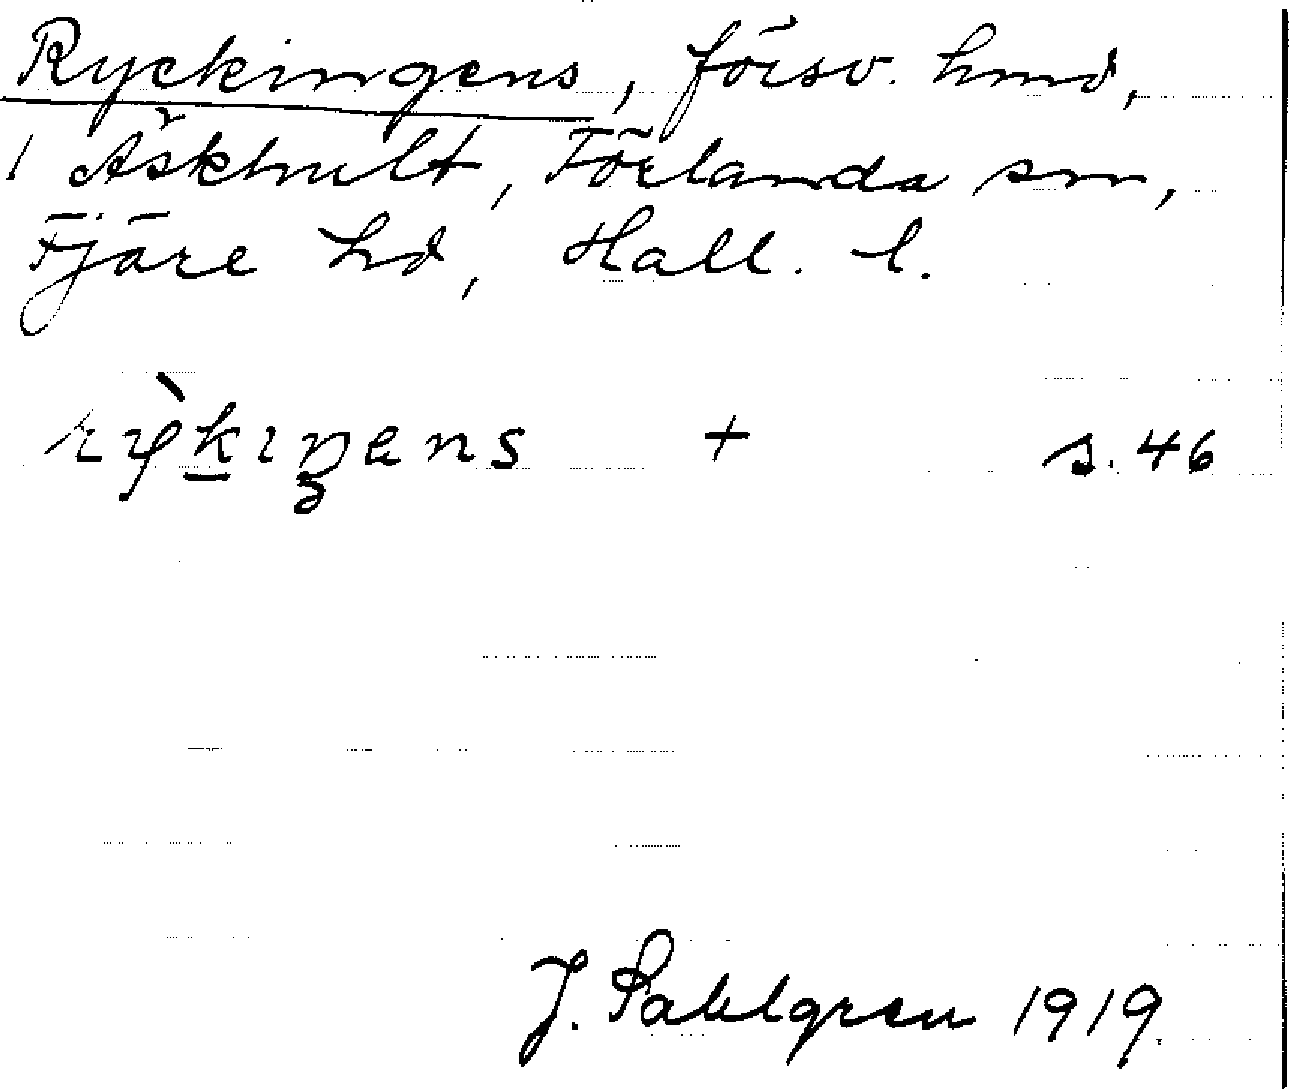 Ryckingens, försv. hmd,
1 Äskhult, Förlanda sn,
Fjäre hd, Hall. l.
rỳkɩŋens + s. 46
J. Sahlgren 1919